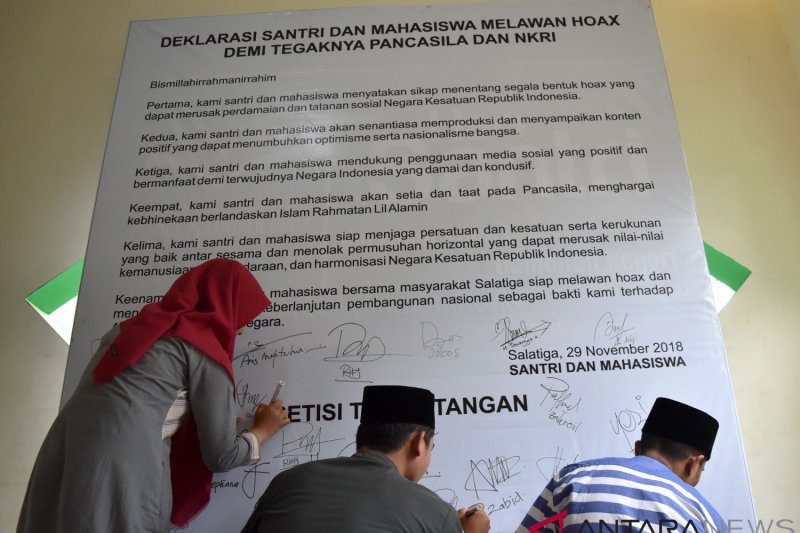 DEKLARASI SANTRI DAN MAHASISWA MELAWAN HOAX
DEMI TEGAKNYA PANCASILA DAN NKRI
Bismillahirrahmanirrahim
Pertama, kami santri dan mahasiswa menyatakan sikap menentang segala bentuk hoax yang
dapat merusak perdamaian dan tatanan sosial Negara Kesatuan Republik Indonesia.
Kedua, kami santri dan mahasiswa akan senantiasa memproduksi dan menyampaikan konten
positif yang dapat menumbuhkan optimisme serta nasionalisme bangsa.
Ketiga, kami santri dan mahasiswa mendukung penggunaan media sosial yang positif dan
bermanfaat demi terwujudnya Negara Indonesia yang damai dan kondusif.
Keempat, kami santri dan mahasiswa akan setia dan taat pada Pancasila, menghargai
kebhinekaan berlandaskan Islam Rahmatan Lil Alamin
Kelima, kami santri dan mahasiswa siap menjaga persatuan dan kesatuan serta kerukunan
yang baik antar sesama dan menolak permusuhan horizontal yang dapat merusak nilai-nilai
kemanusiaan, daraan, dan harmonisasi Negara Kesatuan Republik Indonesia.
Keenam mahasiswa bersama masyarakat Salatiga siap melawan hoax dan
men eberlanjutan pembangunan nasional sebagai bakti kami terhadap
egara.
Riky
Salatiga, 29 November 2018
SANTRI DAN MAHASISWA
ETISI T TANGAN
Zabid
ANTARANEWS
.com